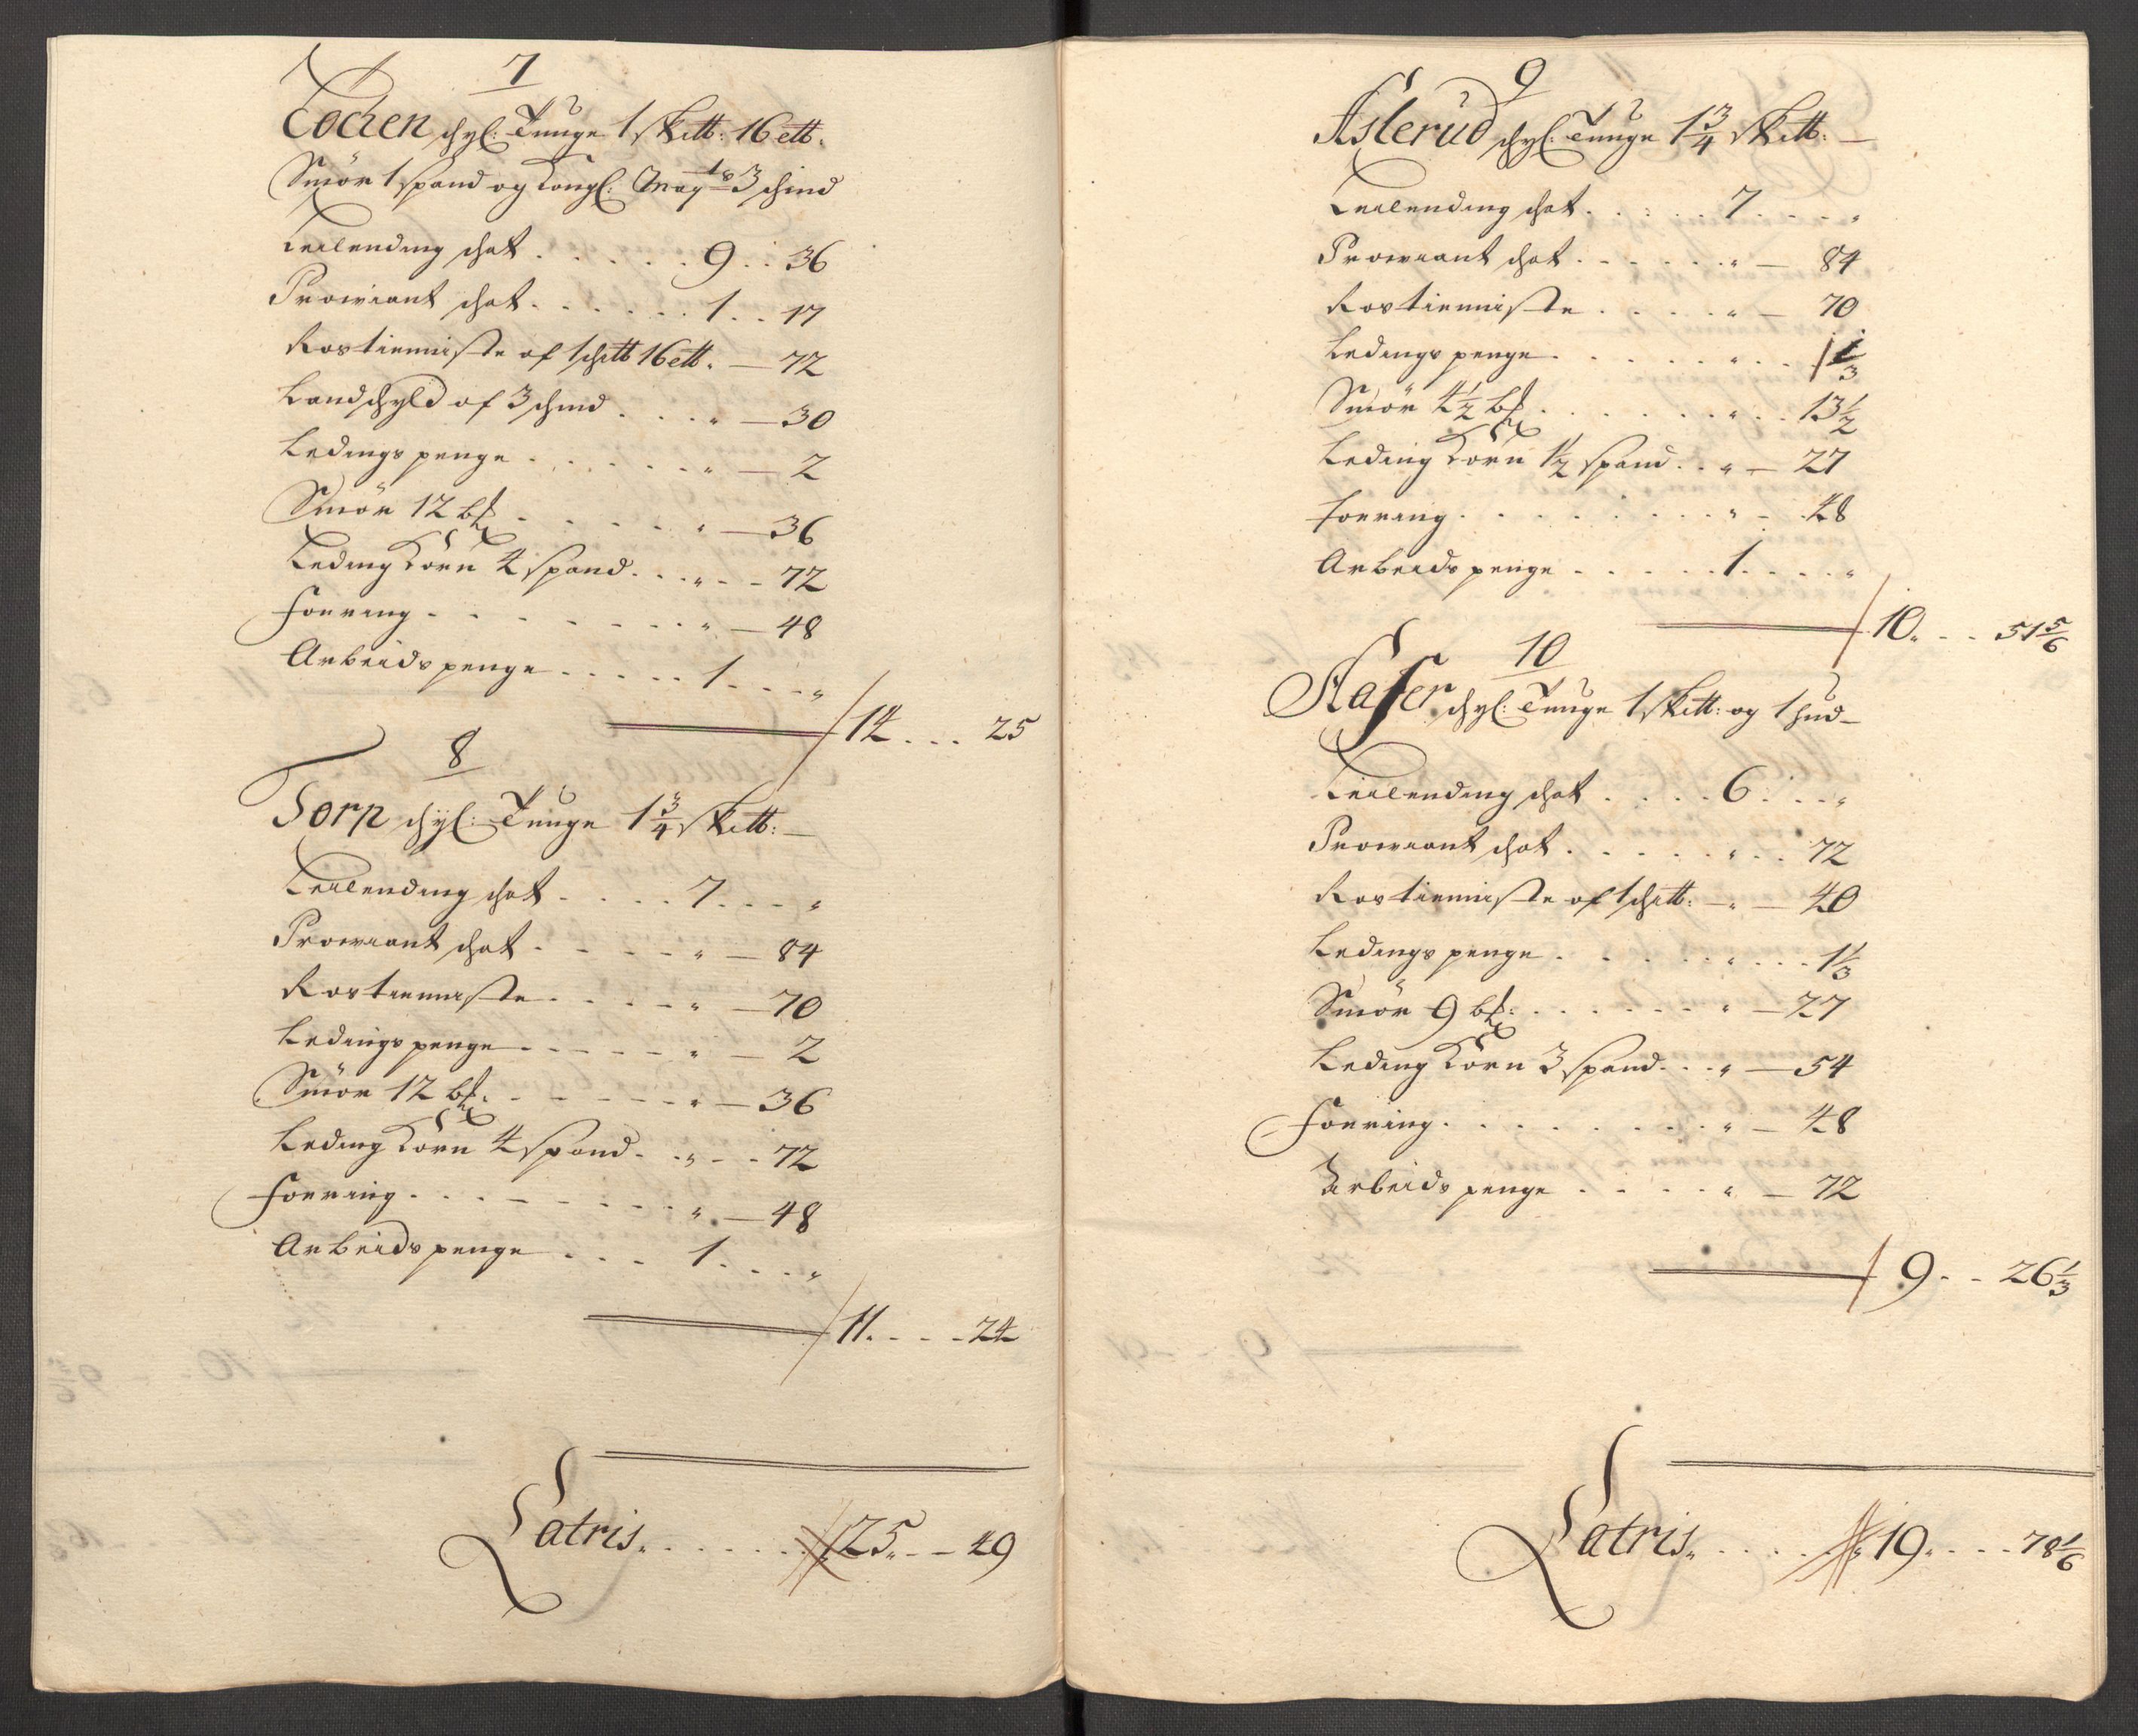 7
Lochen schyl: Tunge 1 skitt: 16 ett.
Smör 1 spand og Kongl: Mayts 3 schind
Leilending schat . . . . . . 9 . . 36
Proviant schat . . . . . . 1 . . 17
Rostienniste af 1 schitt 16 ett. — 72
Landschyld af 3 schind . . . " — 30
Ledings penge . . . . . . " — 2
Smör 12 bs . . . . . " — 36
Leding Korn 4 spand . . . " - - 72
Foering - - - - - - - " — 48
Arbeids penge . . . . . 1 . . . "
14 . . . 25
8
Torp schyl: Tunge 1 3/4 skitt: —
Leilending schat . . . . 7 . . . "
Proviant schat - - - - " — 84
Rostienniste - - - - " — 70
Ledings penge - - - - - " — 2
Smör 12 bs: - - - - - " — 36
Leding Korn 4 spand - . " - - 72
Foering - . . - - - . . . " — 48
Arbeids penge . . . 1 . . . "
11 . - - - 24
Latris . . . . . . 25 . - - 49
9
Aslerud schyl: Tunge 1 3/4 skitt: —
Leilending schat . . . . . 7 . . . . "
Proviant schat . . . . . . " — 84
Rostienniste . . . . . " — 70
Ledings penge . . . . . . " . . 1 1/3
Smör 4 1/2 bs . . . . . . " . . 13 1/2
Leding Korn 1 1/2 spand . . " — 27
Foering . . . . . . . . " — 48
Arbeids penge . . . . . 1 . . . . "
10 . . - - 51 5/6
10
Haser schyl: Tunge 1 skitt: og 1 hud —
Leilending schat . . . . 6 . . . "
Proviant schat . . . . . " . . 72
Rostienniste af 1 schitt: — " — 40
Ledings penge . . . . . . " . . . 1 1/3
Smör 9 bs: . . . . . . " — 27
Leding Korn 3 spand . . . " — 54
Foering . . . . . . . . . " — 48
Arbeids penge . . . . " — 72
9 - - 26 1/3
Latris . . . . . 19 . . . . 78 1/6